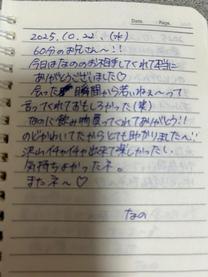 Date
Page
2025.10.22.(水)
60分のお兄さん〜!!
今日はなののお相手してくれて本当に
ありがとうございました♡
会った瞬間から若いねぇ〜って
言ってくれておもしろかった(笑)
なのに飲み物買ってくれてありがとう!!
のどかわいてたからとても助かりました〜!
沢山イチャイチャ出来て楽しかったし
気持ちよかったネ。
またネ〜♡
なの